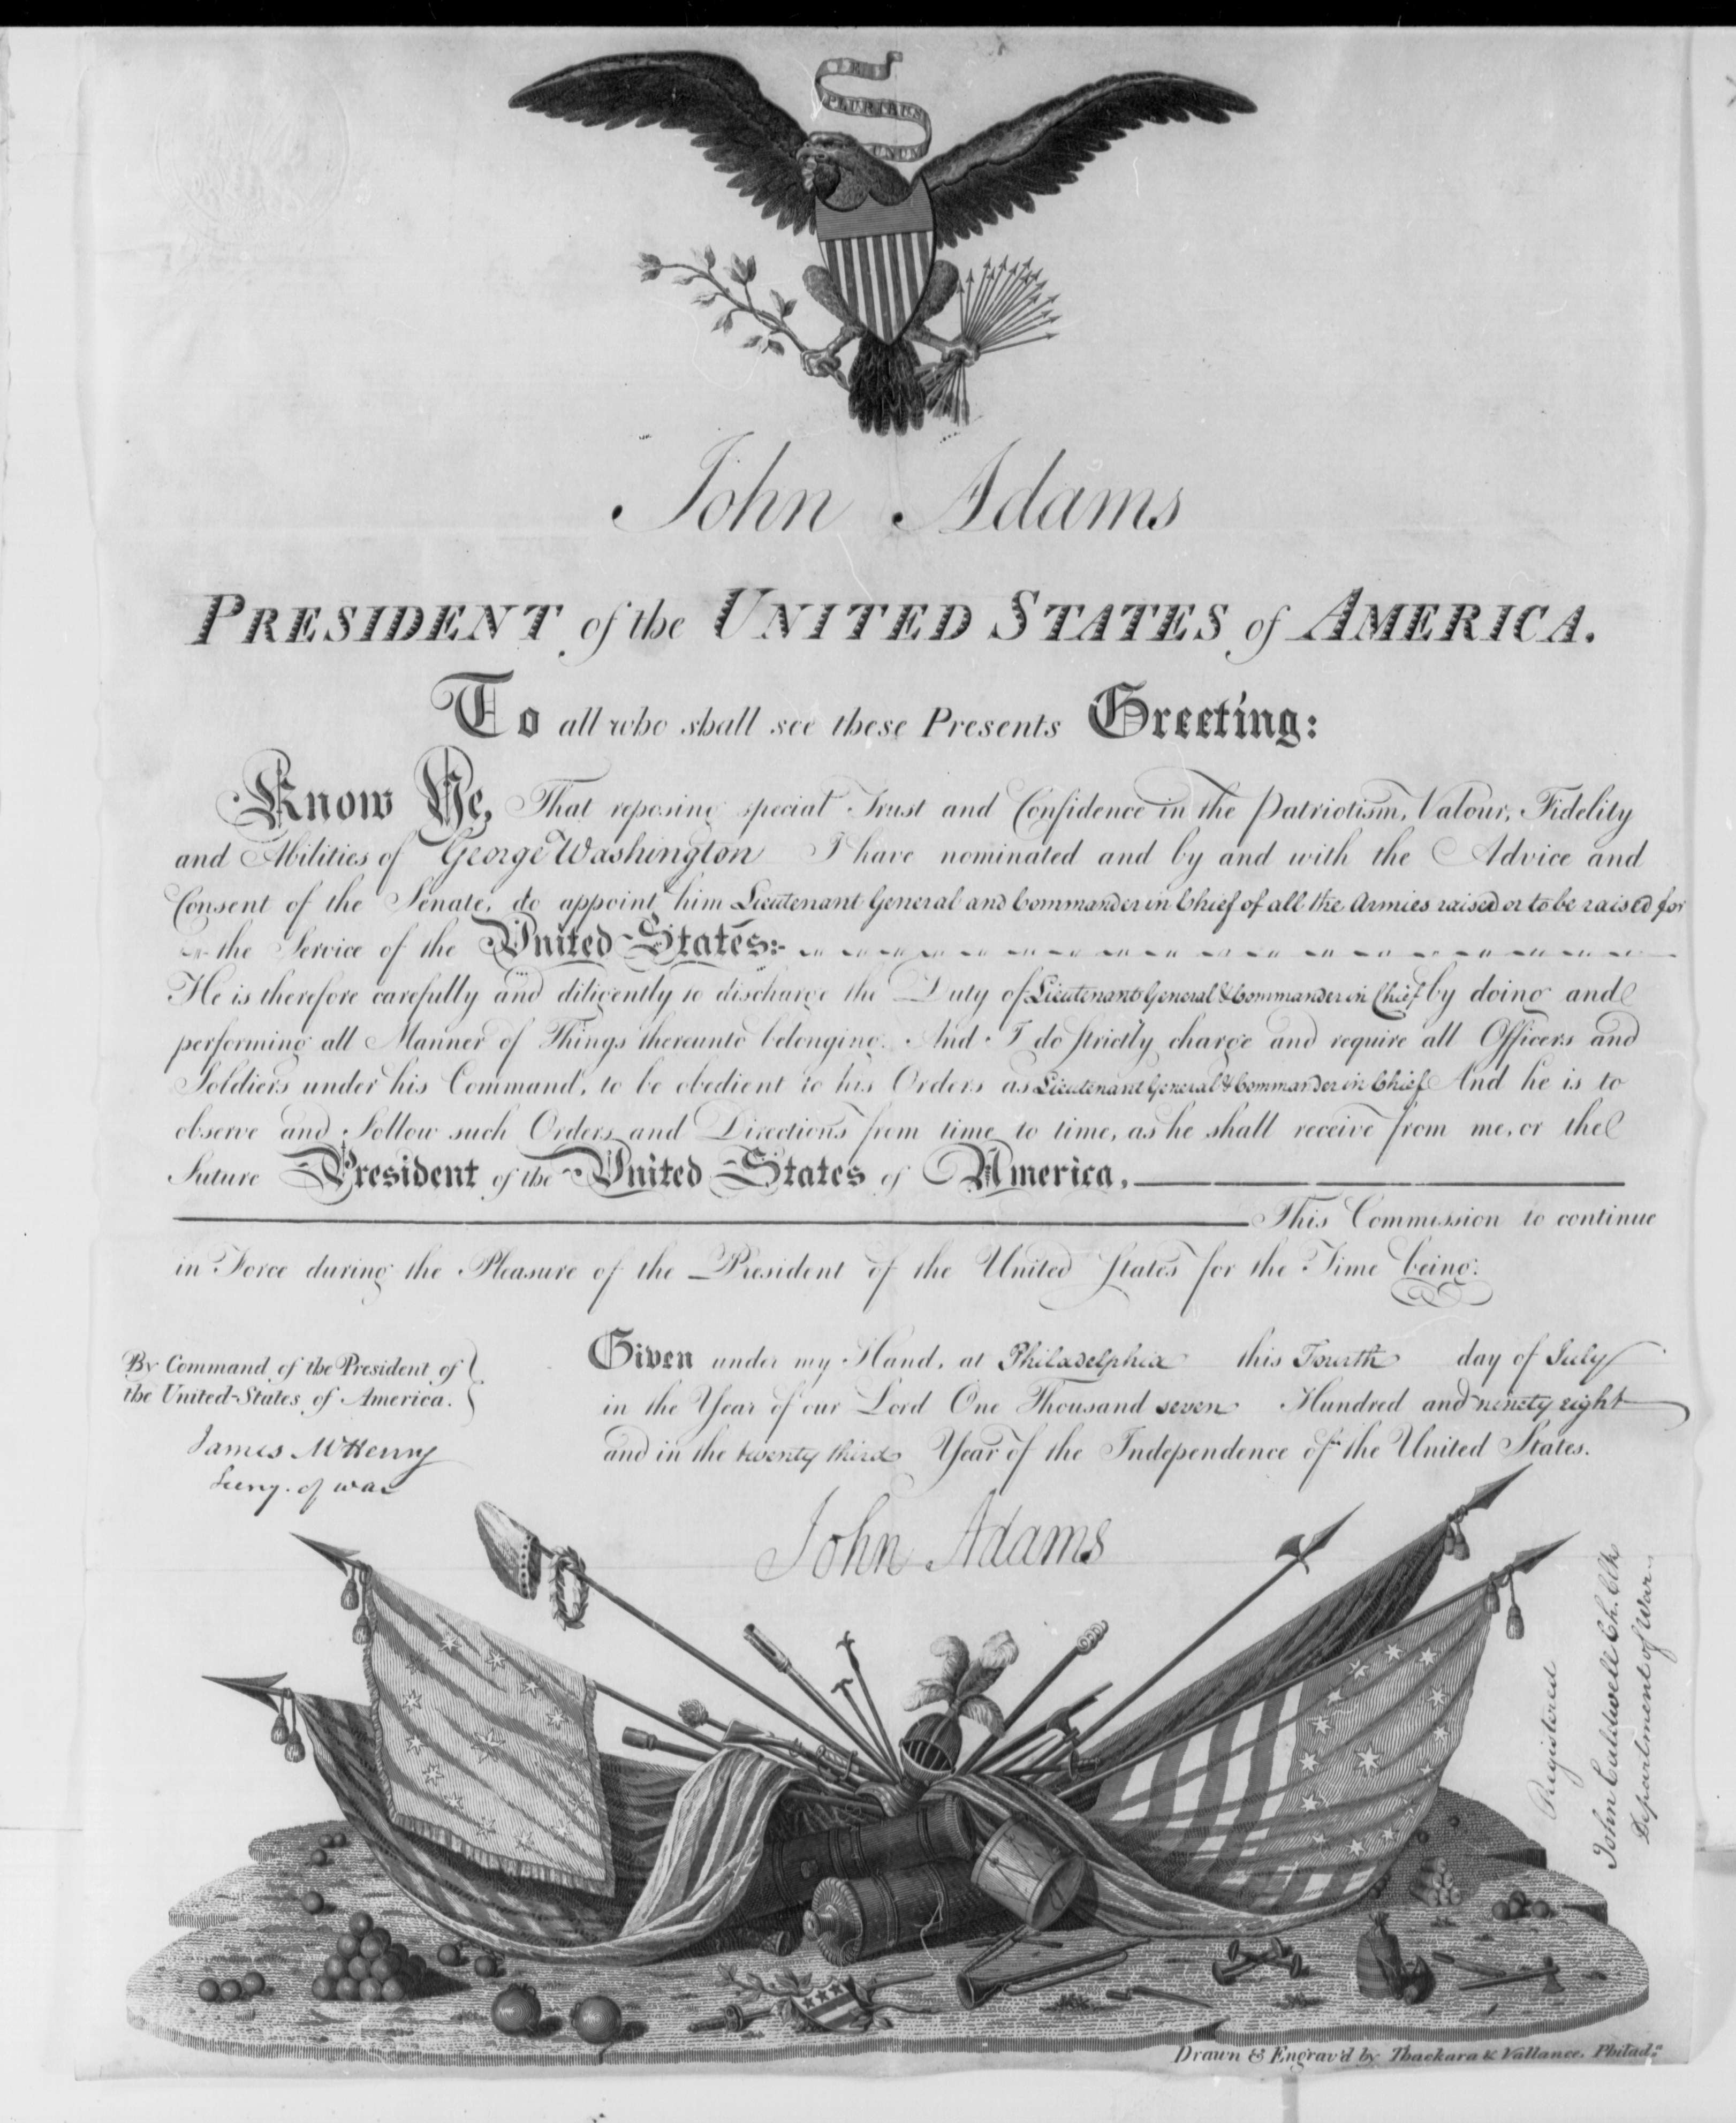 E PLURIBUS UNUM
John Adams
PRESIDENT of the UNITED STATES of AMERICA.
To all who shall see these Presents Greeting:
Know Ye, That reposing special Trust and Confidence in the Patriotism, Valour, Fidelity
and Abilities of George Washington I have nominated and by and with the Advice and
Consent of the Senate, do appoint him Lieutenant General and Commander in Chief of all the Armies raised or to be raised for
the Service of the United States:
He is therefore carefully and diligently to discharge the Duty of Lieutenant General & Commander in Chief by doing and
performing all Manner of Things thereunto belonging. And I do strictly charge and require all Officers and
Soldiers under his Command, to be obedient to his Orders as Lieutenant General & Commander in Chief And he is to
observe and follow such Orders and Directions from time to time, as he shall receive from me, or the
future President of the United States of America,
This Commission to continue
in Force during the Pleasure of the President of the United States for the Time being.
By Command of the President of
the United-States of America.
James McHenry
Secry. of war
Given under my Hand, at Philadelphia this Fourth day of July
in the Year of our Lord One Thousand seven Hundred and ninety eight
and in the twenty third Year of the Independence of the United States.
John Adams
Registered
John Caldwell Ch. Clk
Department of War
Drawn & Engrav'd by Thackara & Vallance. Philad.ª